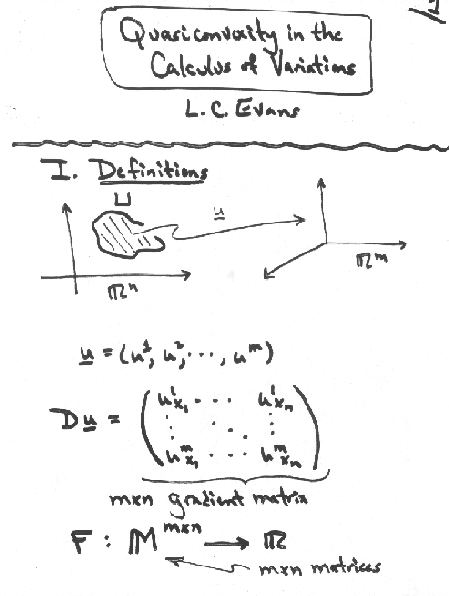 1
Quasiconvexity in the
Calculus of Variations
L.C. Evans
I. Definitions
U
u
ℝⁿ
ℝᵐ
u = (u¹, u², ⋯, uᵐ)
Du = ( u¹ₓ₁ ⋯ u¹ₓₙ
⋮ ⋱ ⋮
uᵐₓ₁ ⋯ uᵐₓₙ )
m×n gradient matrix
F : 𝕄ᵐˣⁿ → ℝ
m×n matrices